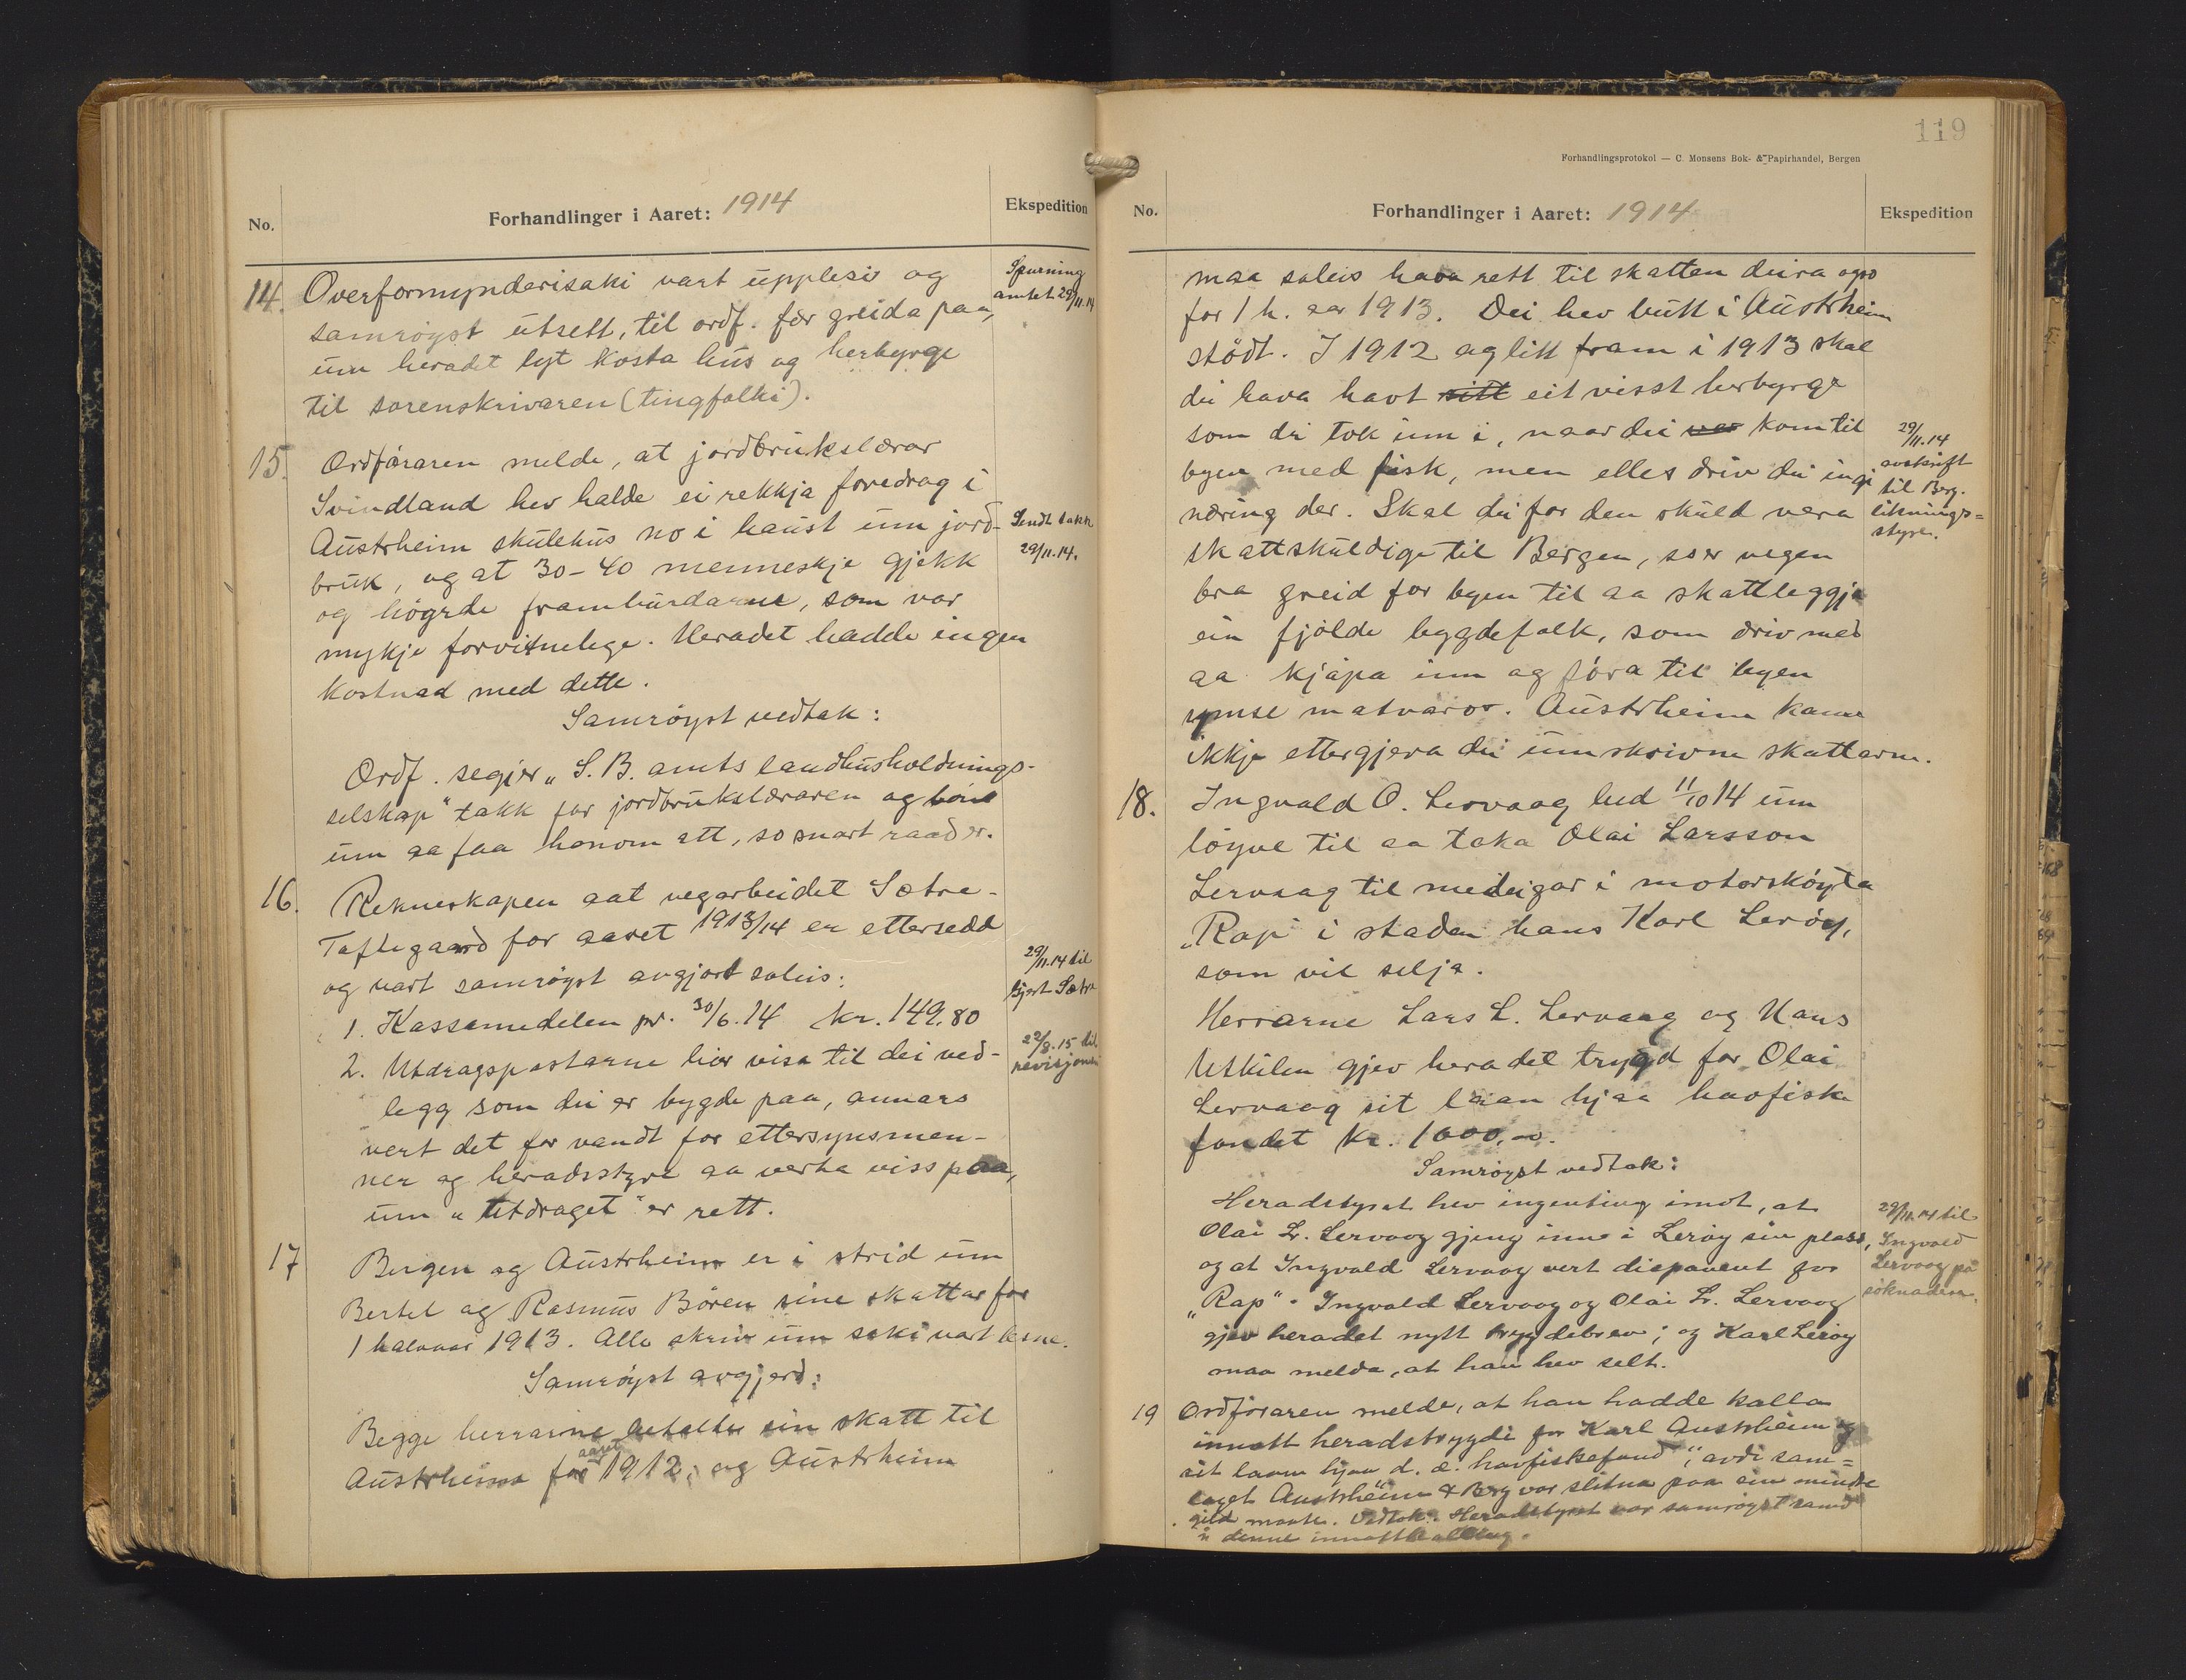 No.
Forhandlinger i Aaret: 1914
Ekspedition
14. Overformynderisaki vart upplesi og
samrøyst utsett, til ordf. fær greida paa,
um heradet lyt kosta hus og herbyrge
til sorenskrivaren (tingfolki).
Spurning
amtet 29/11.14
15. Ordføraren melde, at jordbrukslærar
Svindland hev halde ei rekkja foredrag i
Austrheim skulehus no i haust um jord-
bruk, og at 30-40 menneskje gjekk
og høgrde framburdarne, som var
mykje forvitnelege. Heradet hadde ingen
kostnad med dette.
Sendt takk
29/11.14.
Samrøyst vedtak:
Ordf. segjer „S. B. amts landhusholdnings-
selskap" takk for jordbrukslæraren og bóne
um aa faa honom att, so snart raad er.
16. Rekneskapen aat vegarbeidet Sætre-
Toftegaard for aaret 1913/14 er ettersedd
og vart samrøyst avgjort soleis:
1. Kassamedelen pr. 30/6.14 kr. 149,80
2. Utdragspostarne bør visa til dei ved-
legg som dei er bygde paa, annars
vert det for vandt for ettersynsmen-
ner og heradsstyre aa verta viss paa,
um „utdraget" er rett.
29/11.14 til
Gjert Sætre
22/8.15 til
revisjonen
17 Bergen og Austrheim er i strid um
Bertel og Rasmus Børen sine skattar for
1 halvaar 1913. Alle skriv um saki vart lesne.
Samrøyst avgjerd:
Begge herrarne betalte sin skatt til
Austrheim for aaret 1912, og Austrheim
119
Forhandlingsprotokol — C. Monsens Bok- & Papirhandel, Bergen
No.
Forhandlinger i Aaret: 1914
Ekspedition
maa soleis hava rett til skatten deira ogso
for 1 h. aar 1913. Dei hev butt i Austrheim
stødt. I 1912 og litt fram i 1913 skal
dei hava havt sitt eit visst herbyrge
som dei tok inn i, naar dei var kom til
byen med fisk, men elles driv dei ingi
næring der. Skal dei for den skuld vera
skattskuldige til Bergen, so er vegen
bra greid for byen til aa skattleggja
ein fjølde bygdefolk, som driv med
aa kjøpa inn og føra til byen
ymse matvaror. Austrheim kann
ikkje ettergjeva dei umskrivne skattarne.
29/11.14
avskrift
til Berg.
liknings=
styre.
18. Ingvald O. Lervaag bed 11/10 14 um
løyve til aa taka Olai Larsson
Lervaag til medeigar i motorskøyta
„Rap" i staden hans Karl Lerøy,
som vil selja.
Herrarne Lars L. Lervaag og Hans
Utkilen gjev heradet trygd for Olai
Lervaag sit laan hjaa havfiske
fondet kr. 1000,00.
Samrøyst vedtak:
Heradstyret hev ingenting imot, at
Olai L. Lervaag gjeng inn i Lerøy sin plass,
og at Ingvald Lervaag vert disponent for
„Rap". Ingvald Lervaag og Olai L. Lervaag
gjev heradet nytt trygdebrev; og Karl Lerøy
maa melda, at han hev selt.
29/11.14 til
Ingvald
Lervaag på
søknaden.
19 Ordføraren melde, at han hadde kalla
innatt heradstrygdi for Karl Austrheim
sit laan hjaa d. æ. havfiskefond", avdi sam=
laget Austrheim & Berg var slitna paa ein mindre
gild maate. Vedtak: Heradstyret var samrøyst samd
i denne innattkalling.